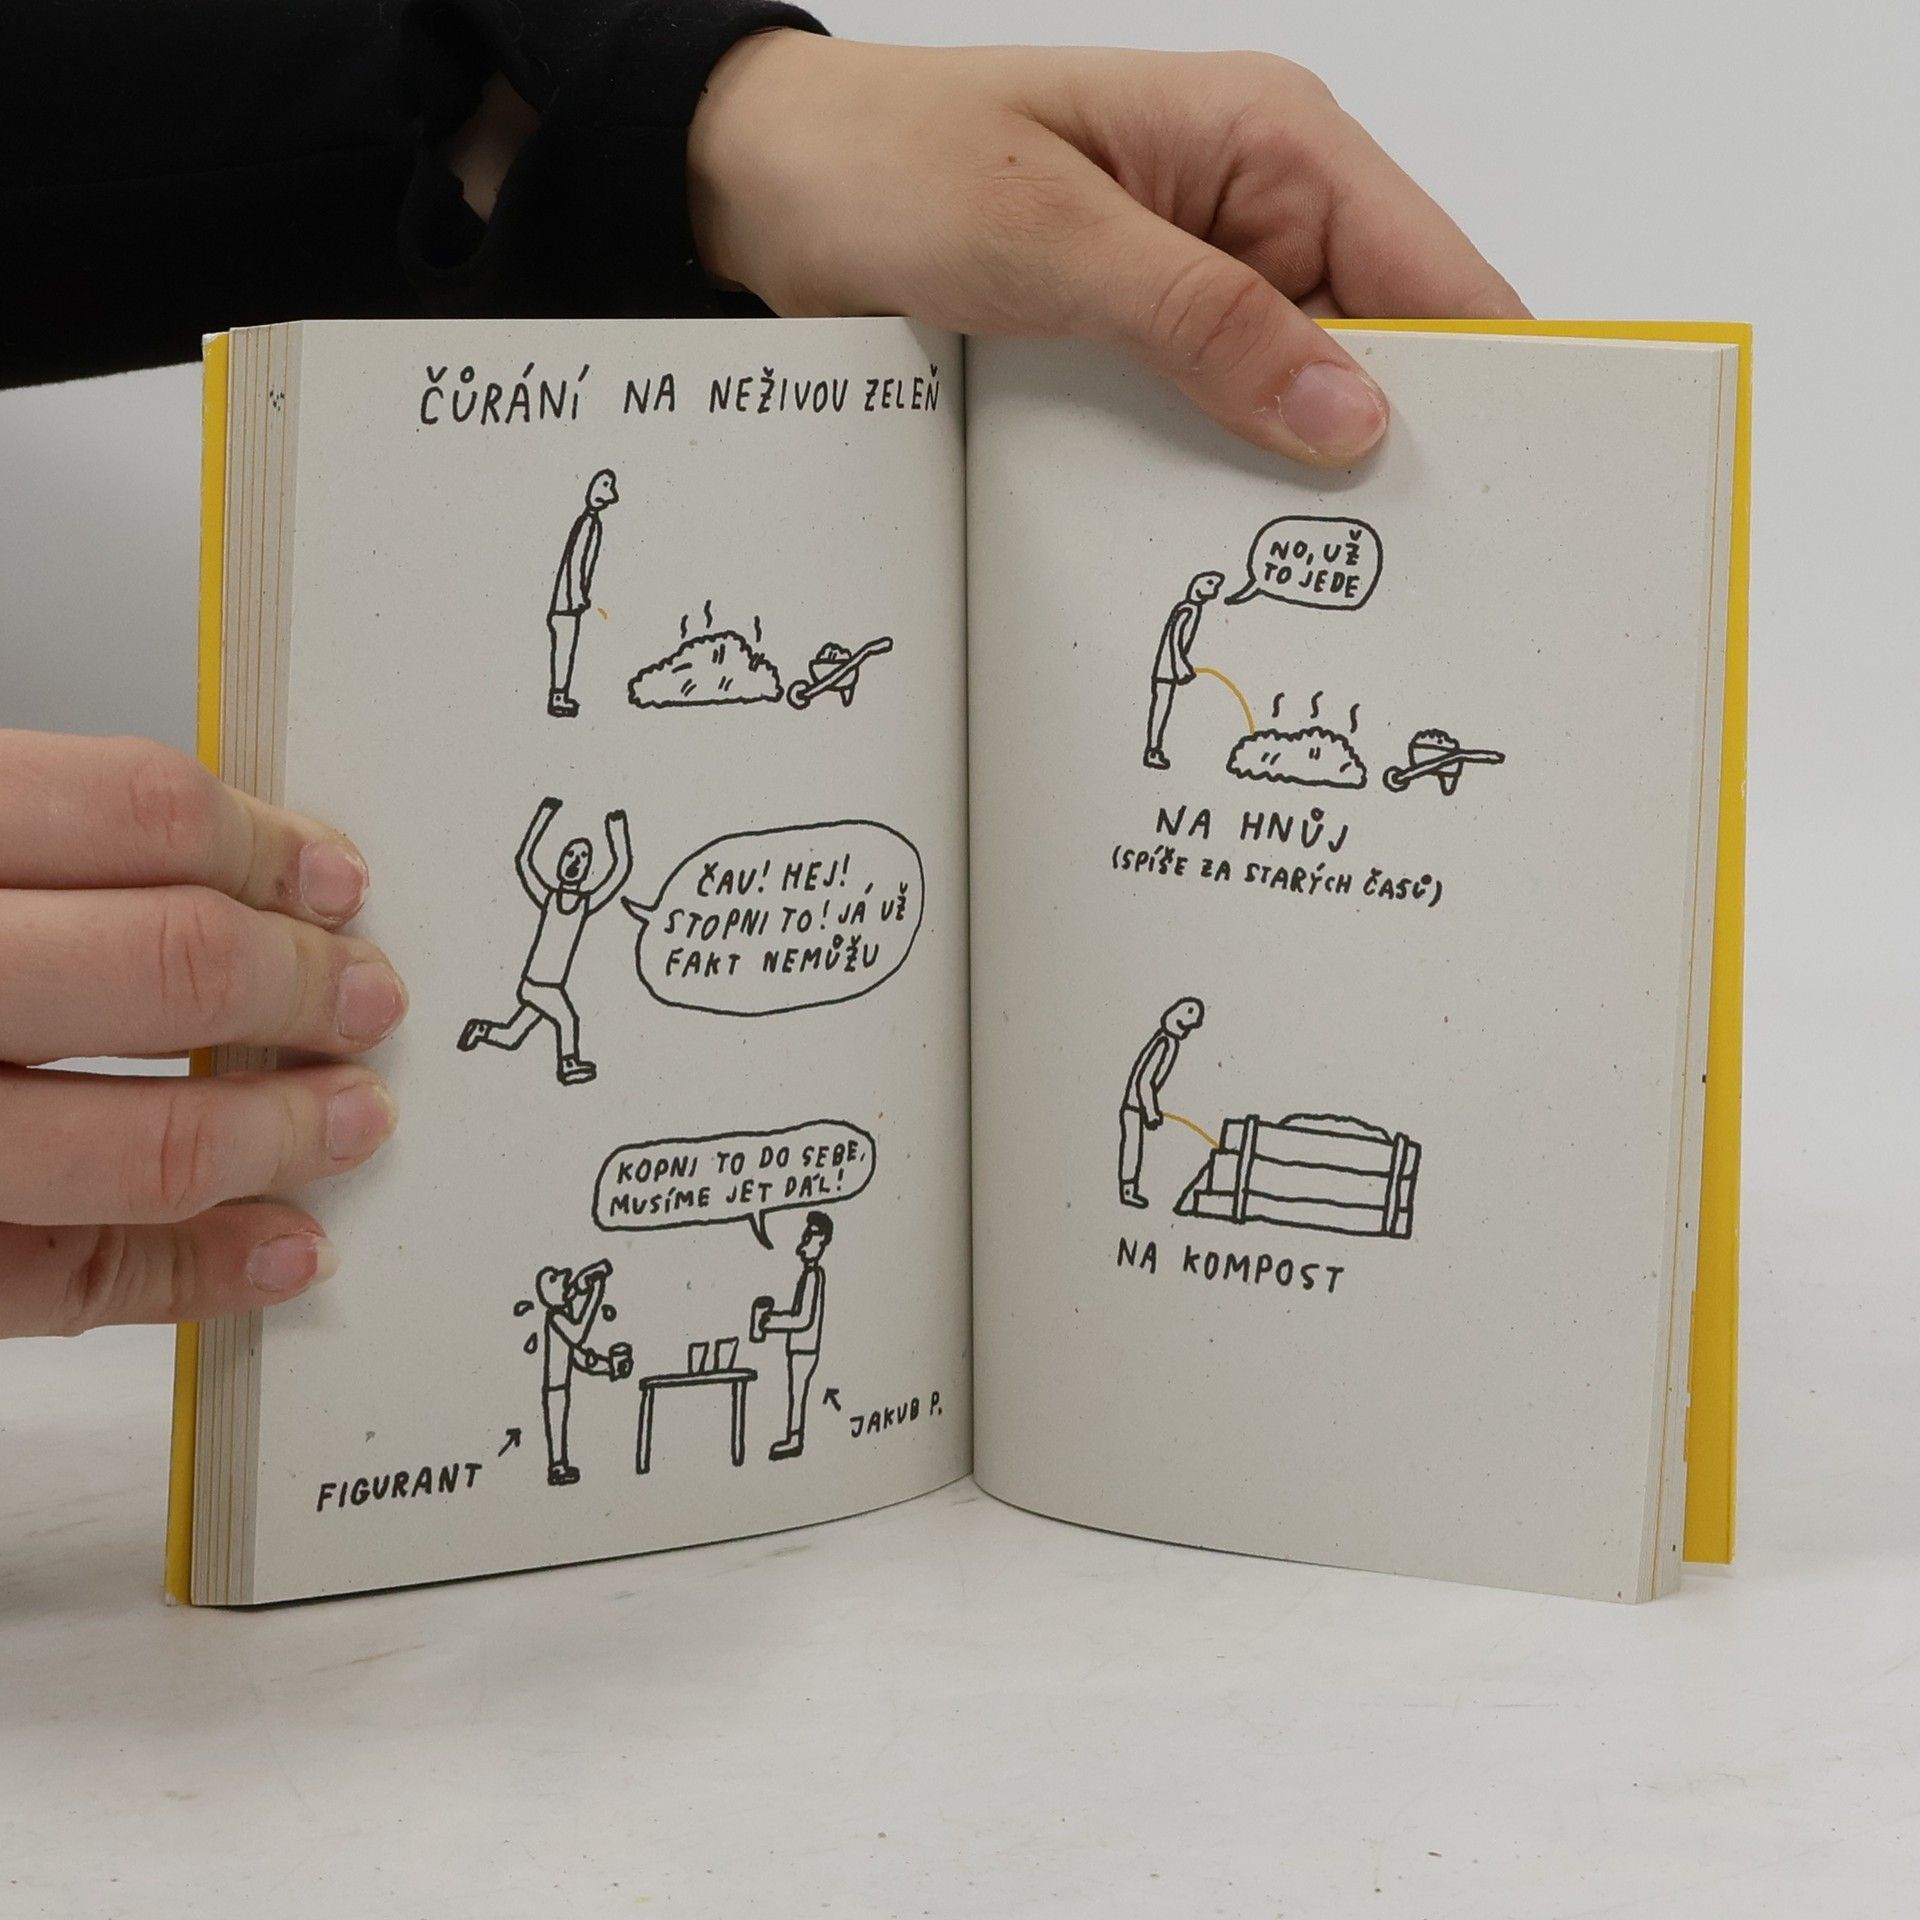 ČŮRÁNÍ NA NEŽIVOU ZELEŇ
ČAU! HEJ!
STOPNI TO! JÁ UŽ
FAKT NEMŮŽU
KOPNI TO DO SEBE,
MUSÍME JET DÁL!
FIGURANT
JAKUB P.
NO, UŽ
TO JEDE
NA HNŮJ
(SPÍŠE ZA STARÝCH ČASŮ)
NA KOMPOST